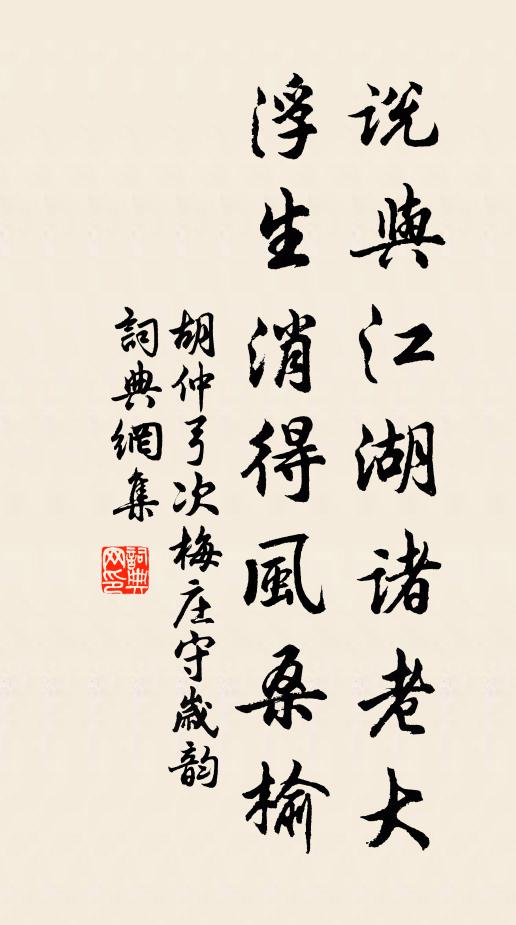 說與江湖諸老大
浮生消得風桑榆
胡仲弓次梅庄守歲韵
詞典網集
詞典
网印